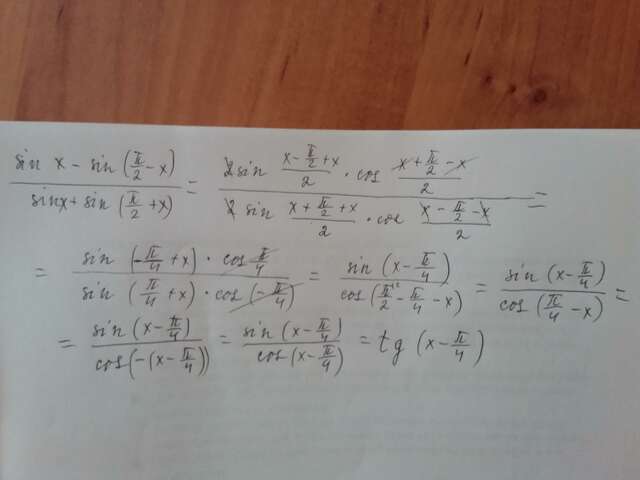 \frac{sin x - sin (\frac{π}{2} - x)}{sinx + sin (\frac{π}{2} + x)} = \frac{2 sin \frac{x - \frac{π}{2} + x}{2} · cos \frac{x + \frac{π}{2} - x}{2}}{2 sin \frac{x + \frac{π}{2} + x}{2} · cos \frac{x - \frac{π}{2} - x}{2}} =
= \frac{sin (-\frac{π}{4} + x) · cos \frac{π}{4}}{sin (\frac{π}{4} + x) · cos (-\frac{π}{4})} = \frac{sin (x - \frac{π}{4})}{cos (\frac{π}{2} - \frac{π}{4} - x)} = \frac{sin (x - \frac{π}{4})}{cos (\frac{π}{4} - x)} =
= \frac{sin (x - \frac{π}{4})}{cos (-(x - \frac{π}{4}))} = \frac{sin (x - \frac{π}{4})}{cos (x - \frac{π}{4})} = tg (x - \frac{π}{4})